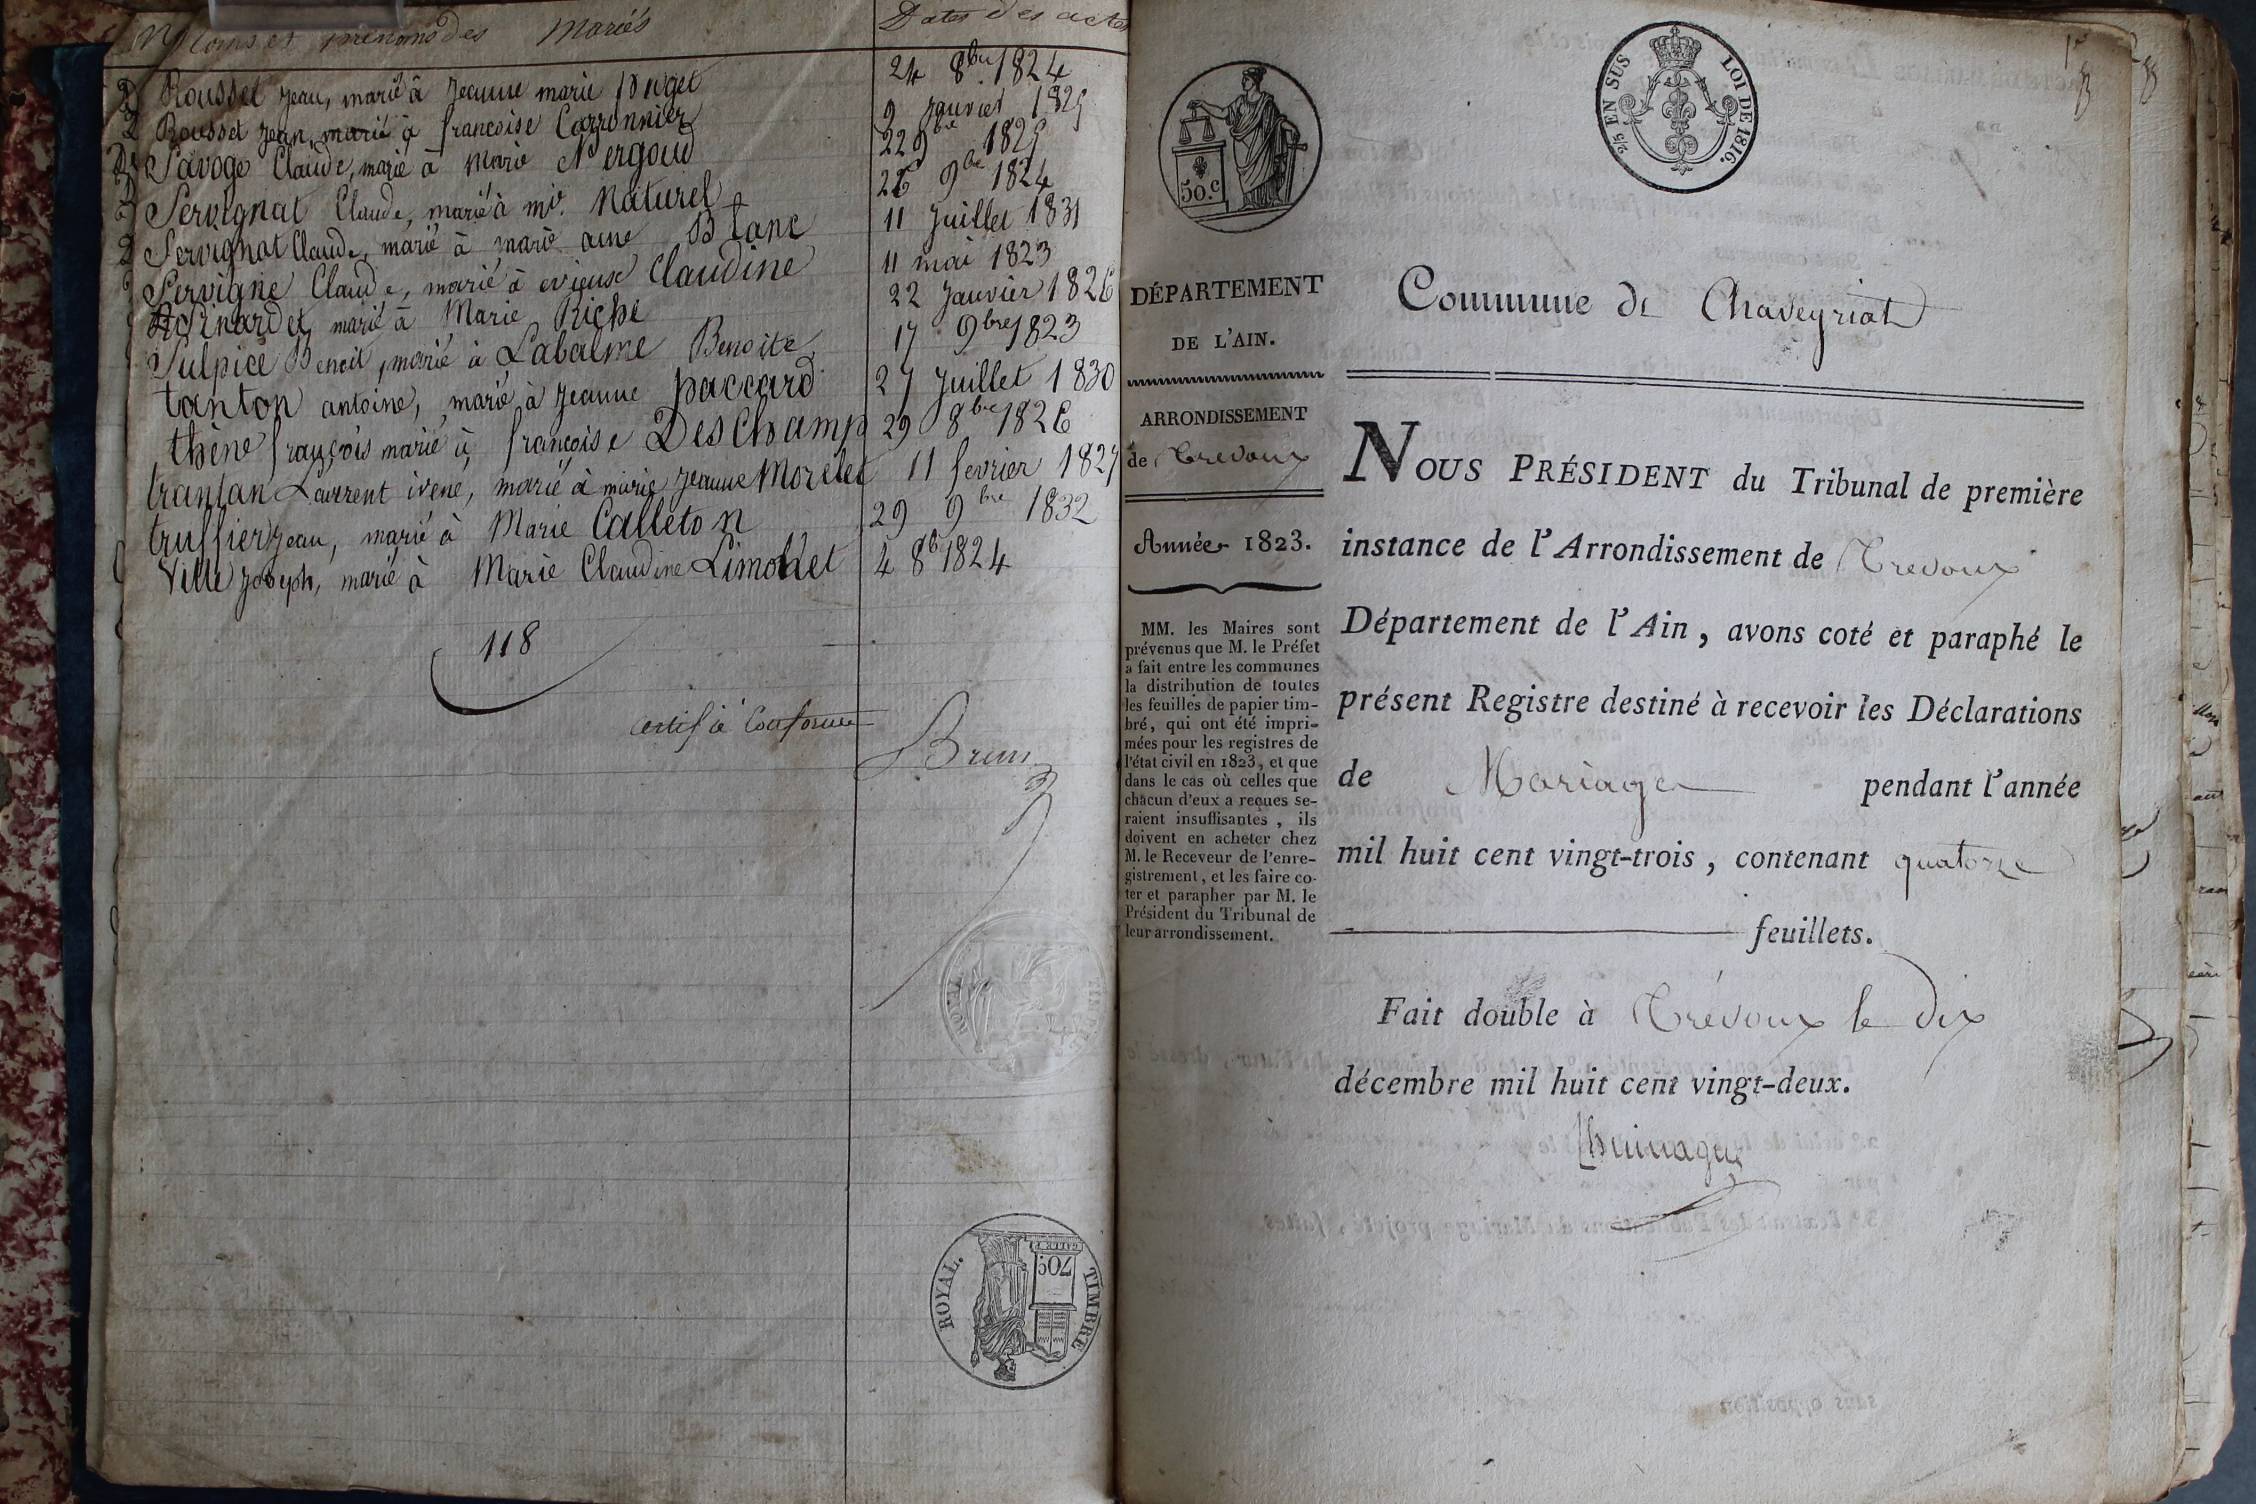 Noms et prénoms des Mariés
Dates des actes
Rousset Jean, marié à Jeanne marie puget 24 8bre 1824
Rousset Jean, marié à françoise Carronnier 9 Janvier 1825
Savoge Claude, marié à Marie Nergoud 22 9bre 1825
Servignat Claude, marié à mie. Naturel 26 9bre 1824
Servignat Claude, marié à marie anne Blanc 11 Juillet 1831
Servigne Claude, marié à Claudine 11 mai 1823
marié à Marie Riche 22 Janvier 1826
Sulpice Benoit, marié à Labalme Benoite 17 9bre 1823
tanton antoine, marié à Jeanne paccard 27 Juillet 1830
thène françois marié à françoise DesChamp 29 8bre 1826
Laurent irene, marié à marie Jeanne Morelet 11 fevrier 1827
truffier Jean, marié à Marie Calleton 29 9bre 1832
Ville Joseph, marié à Marie Claudine Limonet 4 8b 1824
118
certifié Conforme
Brun
ROYAL
TIMBRE
ROYAL.
TIMBRE
70c
50.c
2/5 EN SUS
LOI DE 1816.
1er
DÉPARTEMENT
DE L'AIN.
ARRONDISSEMENT
de Trevoux
Année 1823.
MM. les Maires sont
prévenus que M. le Préfet
a fait entre les communes
la distribution de toutes
les feuilles de papier tim-
bré, qui ont été impri-
mées pour les registres de
l'état civil en 1823, et que
dans le cas où celles que
chacun d'eux a reçues se-
raient insuffisantes, ils
doivent en acheter chez
M. le Receveur de l'enre-
gistrement, et les faire co-
ter et parapher par M. le
Président du Tribunal de
leur arrondissement.
Commune de Chaveyriat
NOUS PRÉSIDENT du Tribunal de première
instance de l'Arrondissement de Trevoux
Département de l'Ain, avons coté et paraphé le
présent Registre destiné à recevoir les Déclarations
de Mariage pendant l'année
mil huit cent vingt-trois, contenant quatorze
feuillets.
Fait double à Trévoux le dix
décembre mil huit cent vingt-deux.